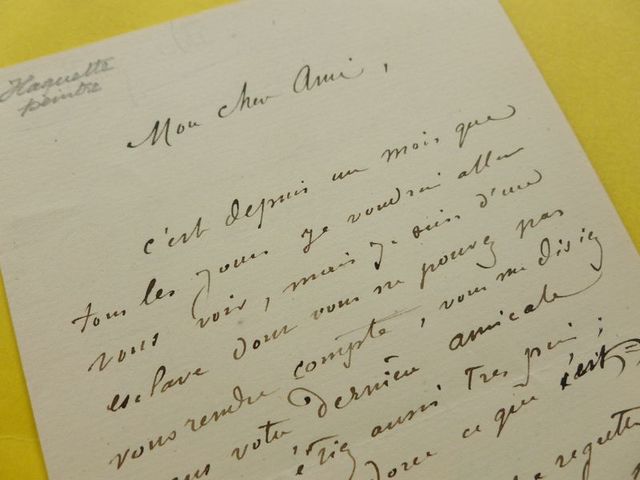 Haquette
peintre
Mon cher Ami,
c'est depuis un mois que
tous les jours je voudrai aller
vous voir, mais je suis d'une
esclave dont vous ne pouvez pas
vous rendre compte, vous me disiez
votre dernière amicale
étiez aussi très pris;
ce que c'est
regrette